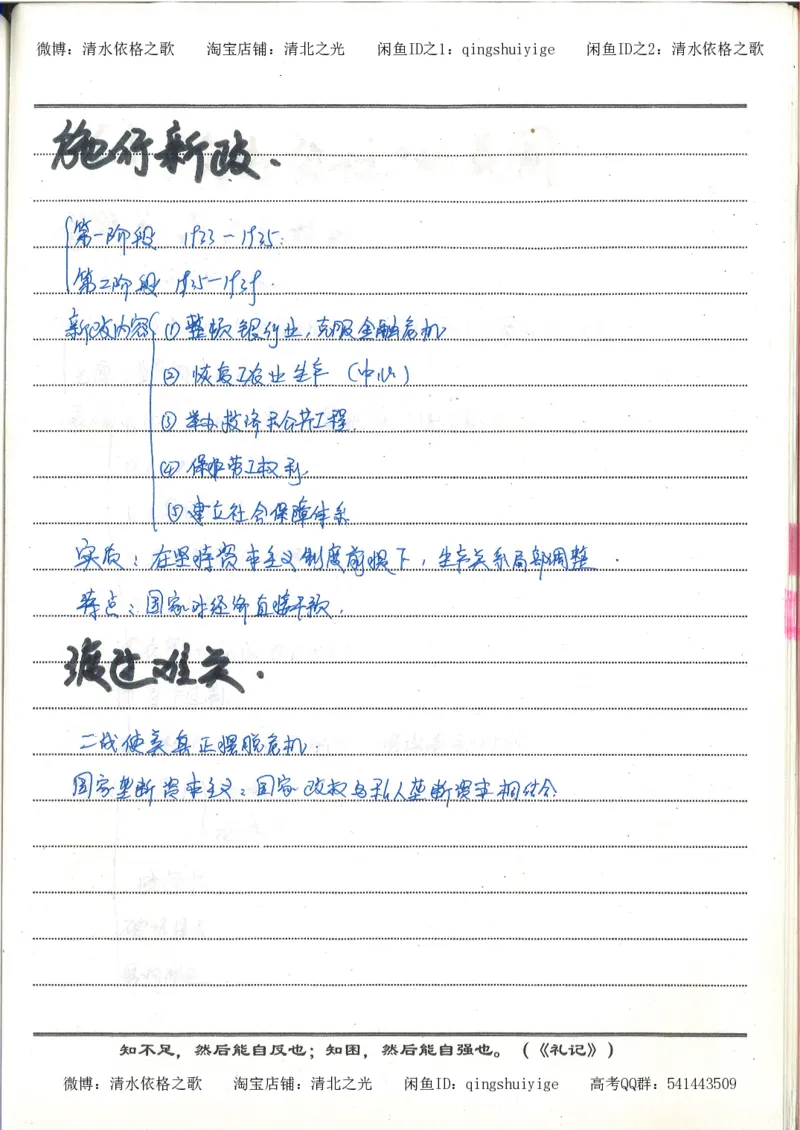 微博：清水依格之歌 淘宝店铺：清北之光 闲鱼ID之1：qingshuiyige 闲鱼ID之2：清水依格之歌
施行新政.
第一阶段 1933-1935.
第二阶段 1935-1939.
新政内容 ① 整顿银行业,克服金融危机
② 恢复工农业生产 (中心)
③ 举办救济和公共工程.
④ 保护劳工权利.
⑤ 建立社会保障体系
实质：在坚持资本主义制度前提下,生产关系局部调整.
特点：国家对经济直接干预.
渡过难关.
二战使美真正摆脱危机.
国家垄断资本主义：国家政权与私人垄断资本相结合.
知不足，然后能自反也；知困，然后能自强也。（《礼记》）
微博：清水依格之歌 淘宝店铺：清北之光 闲鱼ID：qingshuiyige 高考QQ群：541443509